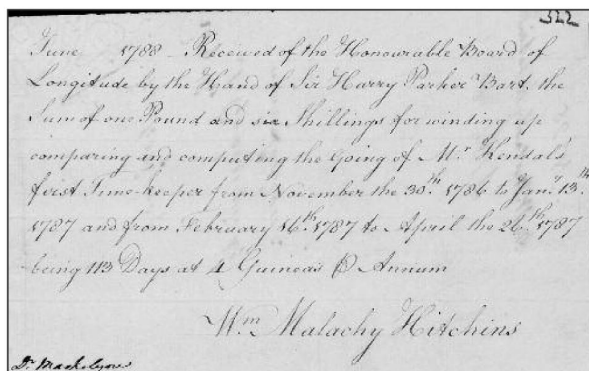 322
June 1788 Received of the Honourable Board of
Longitude by the Hand of Sir Harry Parker Bart. the
Sum of one Pound and six Shillings for winding up
comparing and computing the Going of Mr. Kendal's
first Time-keeper from November the 30th. 1786 to Jany. 13th.
1787 and from February 16th. 1787 to April the 26th. 1787
being 113 Days at 4 Guineas ⅌ Annum
Wm Malachy Hitchins
Dr. Maskelyne